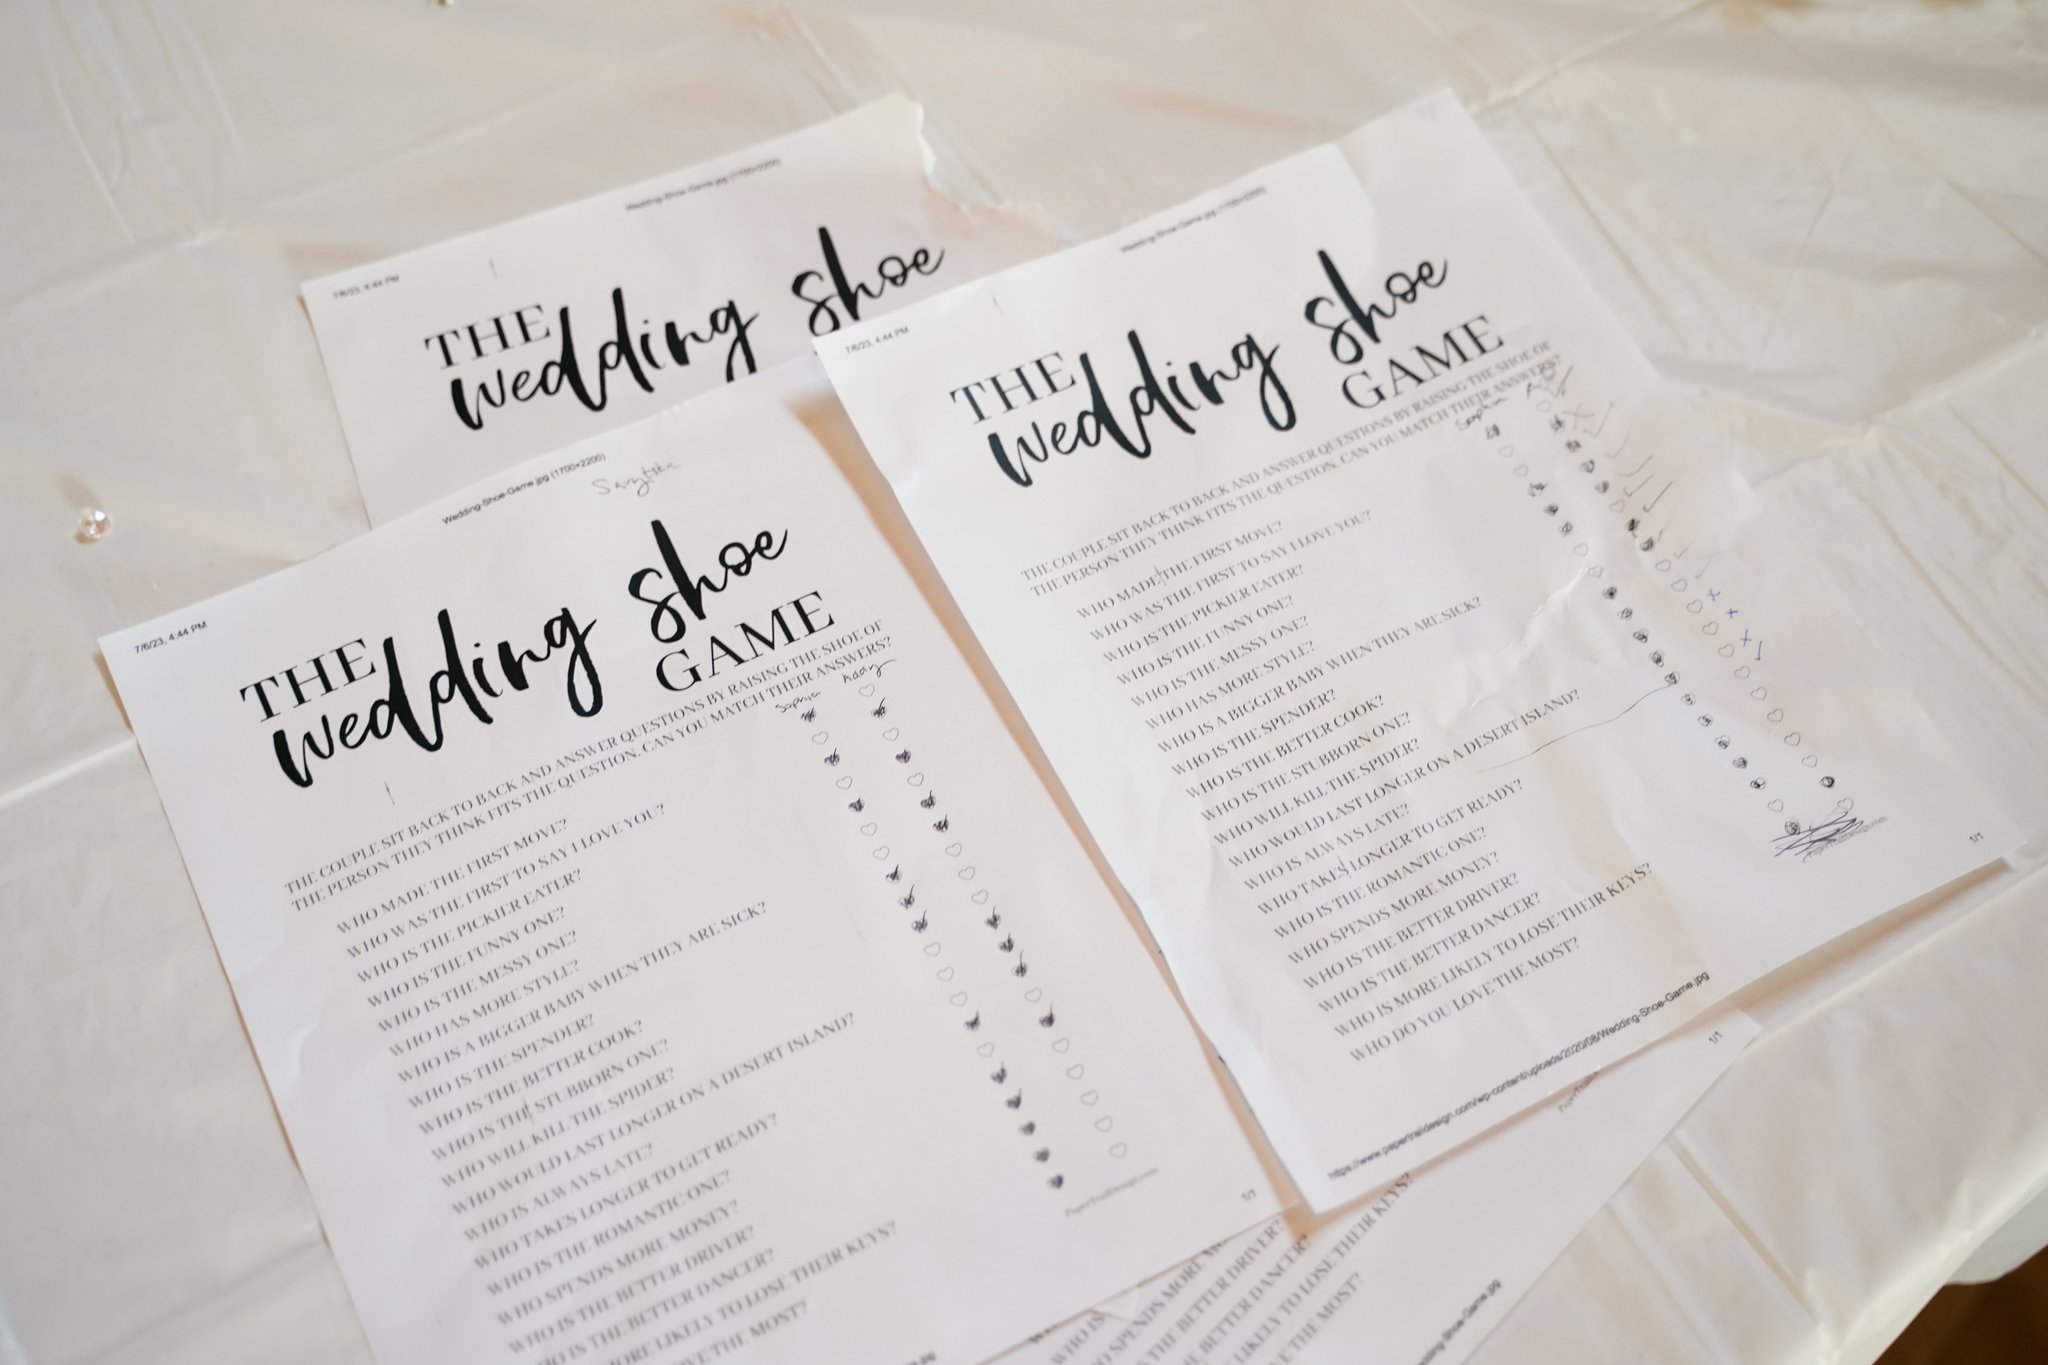 7/6/23, 4:44 PM
Wedding-Shoe-Game.jpg (1700×2200)
THE
wedding shoe
7/6/23, 4:44 PM
Wedding-Shoe-Game.jpg (1700×2200)
THE
wedding shoe
GAME
THE COUPLE SIT BACK TO BACK AND ANSWER QUESTIONS BY RAISING THE SHOE OF
THE PERSON THEY THINK FITS THE QUESTION. CAN YOU MATCH THEIR ANSWERS?
Sophia
WHO MADE THE FIRST MOVE?
WHO WAS THE FIRST TO SAY I LOVE YOU?
WHO IS THE PICKIER EATER?
WHO IS THE FUNNY ONE?
WHO IS THE MESSY ONE?
WHO HAS MORE STYLE?
WHO IS A BIGGER BABY WHEN THEY ARE SICK?
WHO IS THE SPENDER?
WHO IS THE BETTER COOK?
WHO IS THE STUBBORN ONE?
WHO WILL KILL THE SPIDER?
WHO WOULD LAST LONGER ON A DESERT ISLAND?
WHO IS ALWAYS LATE?
WHO TAKES LONGER TO GET READY?
WHO IS THE ROMANTIC ONE?
WHO SPENDS MORE MONEY?
WHO IS THE BETTER DRIVER?
WHO IS THE BETTER DANCER?
WHO IS MORE LIKELY TO LOSE THEIR KEYS?
WHO DO YOU LOVE THE MOST?
https://www.papertraildesign.com/wp-content/uploads/2020/08/Wedding-Shoe-Game.jpg
1/1
7/6/23, 4:44 PM
Wedding-Shoe-Game.jpg (1700×2200)
THE
wedding shoe
GAME
THE COUPLE SIT BACK TO BACK AND ANSWER QUESTIONS BY RAISING THE SHOE OF
THE PERSON THEY THINK FITS THE QUESTION. CAN YOU MATCH THEIR ANSWERS?
Sophia
WHO MADE THE FIRST MOVE?
WHO WAS THE FIRST TO SAY I LOVE YOU?
WHO IS THE PICKIER EATER?
WHO IS THE FUNNY ONE?
WHO IS THE MESSY ONE?
WHO HAS MORE STYLE?
WHO IS A BIGGER BABY WHEN THEY ARE SICK?
WHO IS THE SPENDER?
WHO IS THE BETTER COOK?
WHO IS THE STUBBORN ONE?
WHO WILL KILL THE SPIDER?
WHO WOULD LAST LONGER ON A DESERT ISLAND?
WHO IS ALWAYS LATE?
WHO TAKES LONGER TO GET READY?
WHO IS THE ROMANTIC ONE?
WHO SPENDS MORE MONEY?
WHO IS THE BETTER DRIVER?
WHO IS THE BETTER DANCER?
MORE LIKELY TO LOSE THEIR KEYS?
THE MOST?
PaperTrailDesign.com
1/1
WHO IS
SPENDS MORE
THE BETTER DRIVER?
BETTER DANCER?
LIKELY TO LOSE THEIR KEYS?
THE MOST?
Wedding-Shoe-Game.jpg
1/1